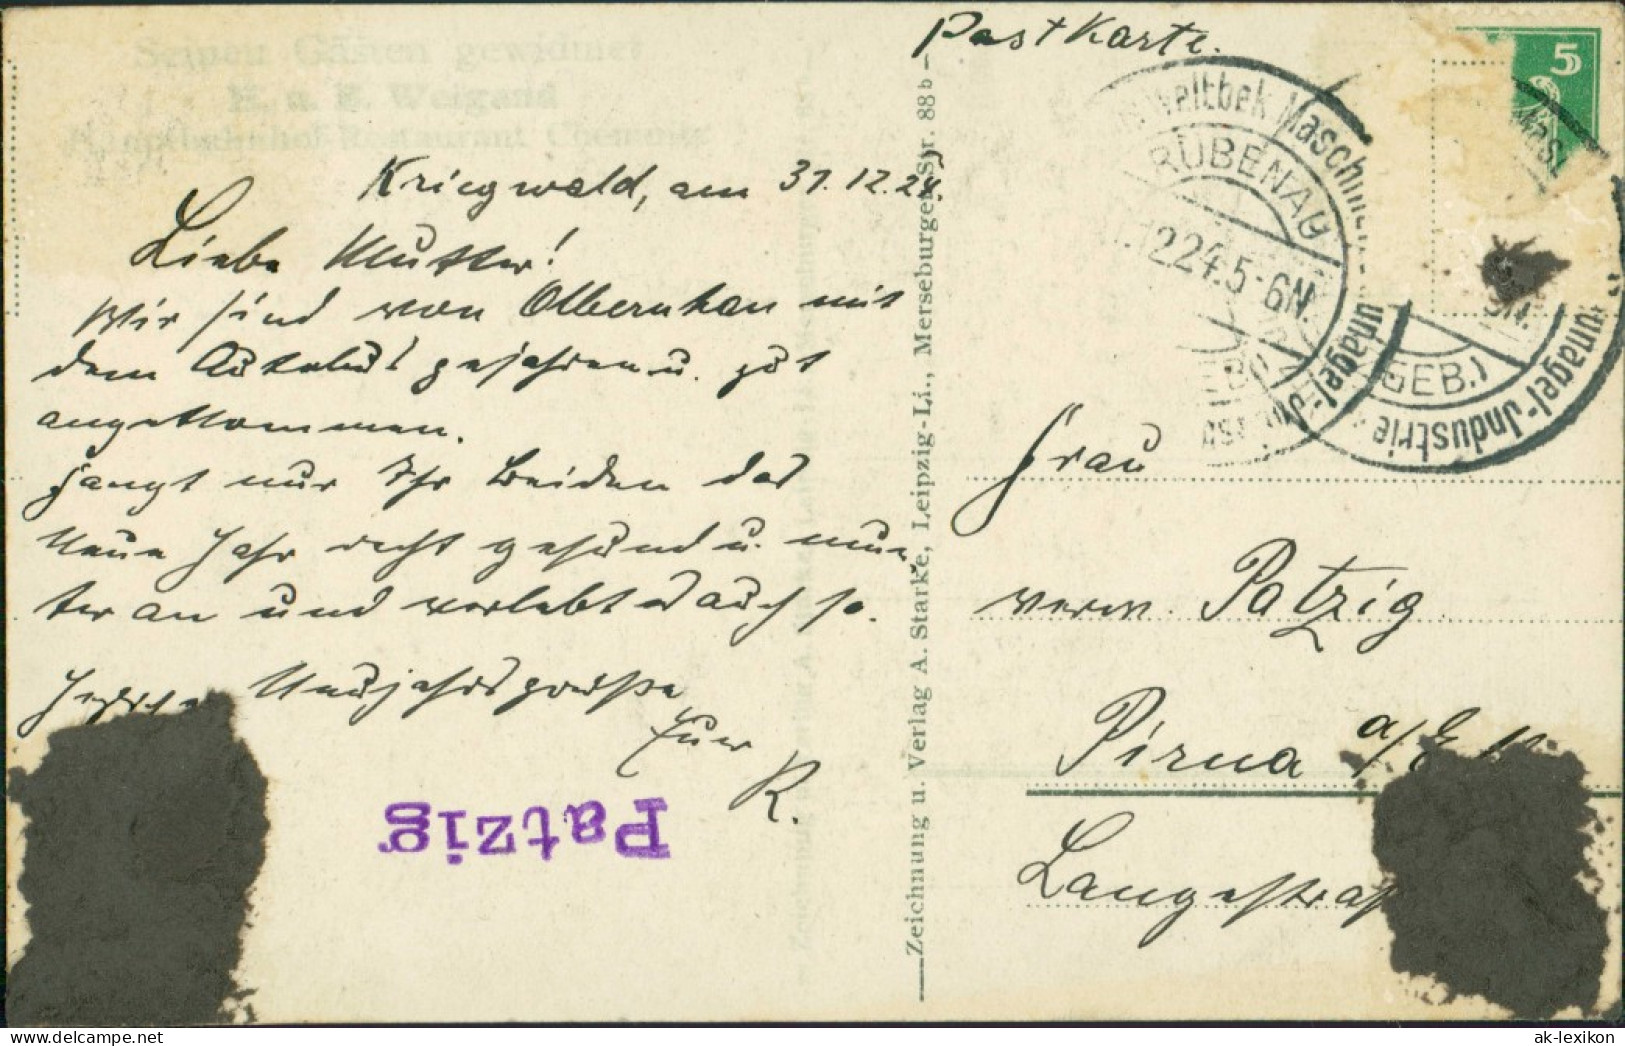 Postkarte.
Seinen Gästen gewidmet
H. u. E. Weigand
Hauptbahnhof-Restaurant Chemnitz
Kriegwald, am 31.12.24.
Liebe Mutter!
Wir sind von Olbernhau mit
dem Autobus gefahren u. gut
angekommen.
Fangt nur Ihr Beiden das
Neue Jahr recht gesund u. mun-
ter an und verlebt es auch so.
Neujahrsgrüße
Euer
R.
Patzig
Zeichnung u. Verlag A. Starke, Leipzig-Li., Merseburger Str. 88b
5
Weltbek Maschinen-
unagel-Industrie
RÜBENAU
12.24.5-6N.
GEB.)
Frau
verw. Patzig
Pirna a/E
Langestraß
ak-lexikon